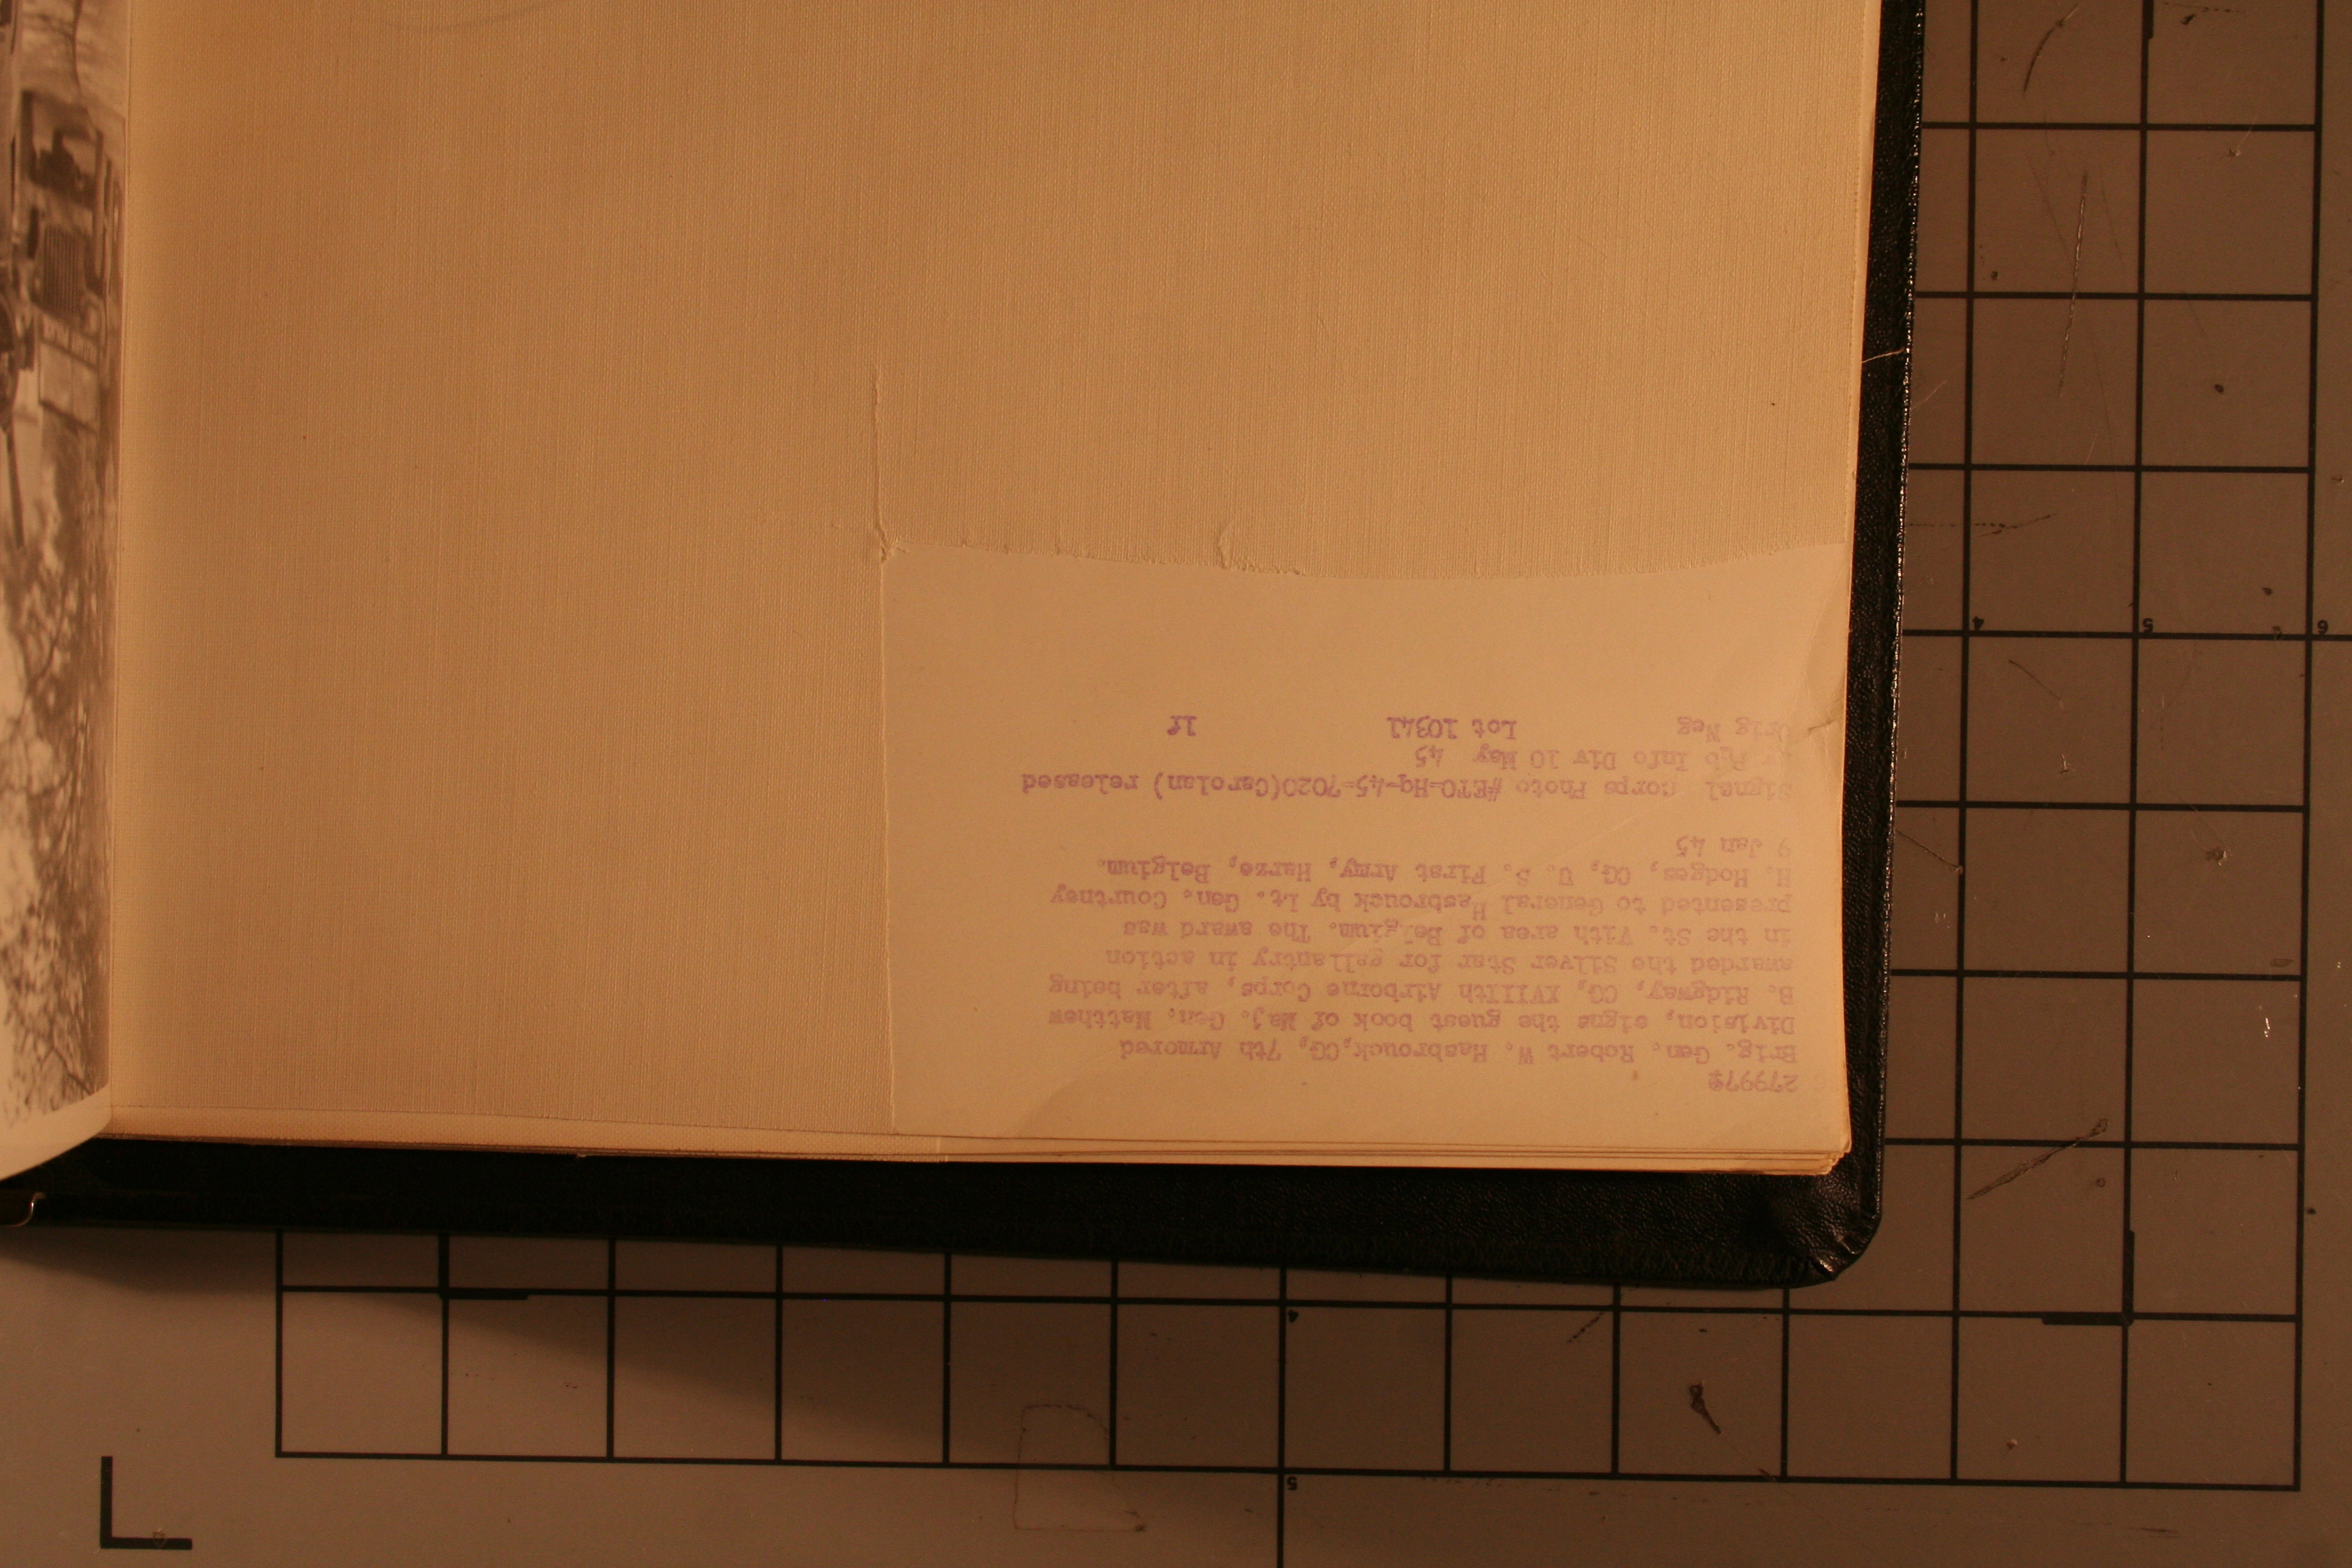 279978
Brig. Gen. Robert W. Hasbrouck,CG, 7th Armored
Division, signs the guest book of Maj. Gen. Matthew
B. Ridgway, CG, XVIIIth Airborne Corps, after being
awarded the Silver Star for gallantry in action
in the St. Vith area of Belgium. The award was
presented to General Hasbrouck by Lt. Gen. Courtney
H. Hodges, CG, U. S. First Army, Harze, Belgium.
9 Jan 45
Signal Corps Photo #ETO-Hq-45-7020(Carolan) released
Pub Info Div 10 May 45
Orig Neg Lot 10341 lf
4 5 6
4
5